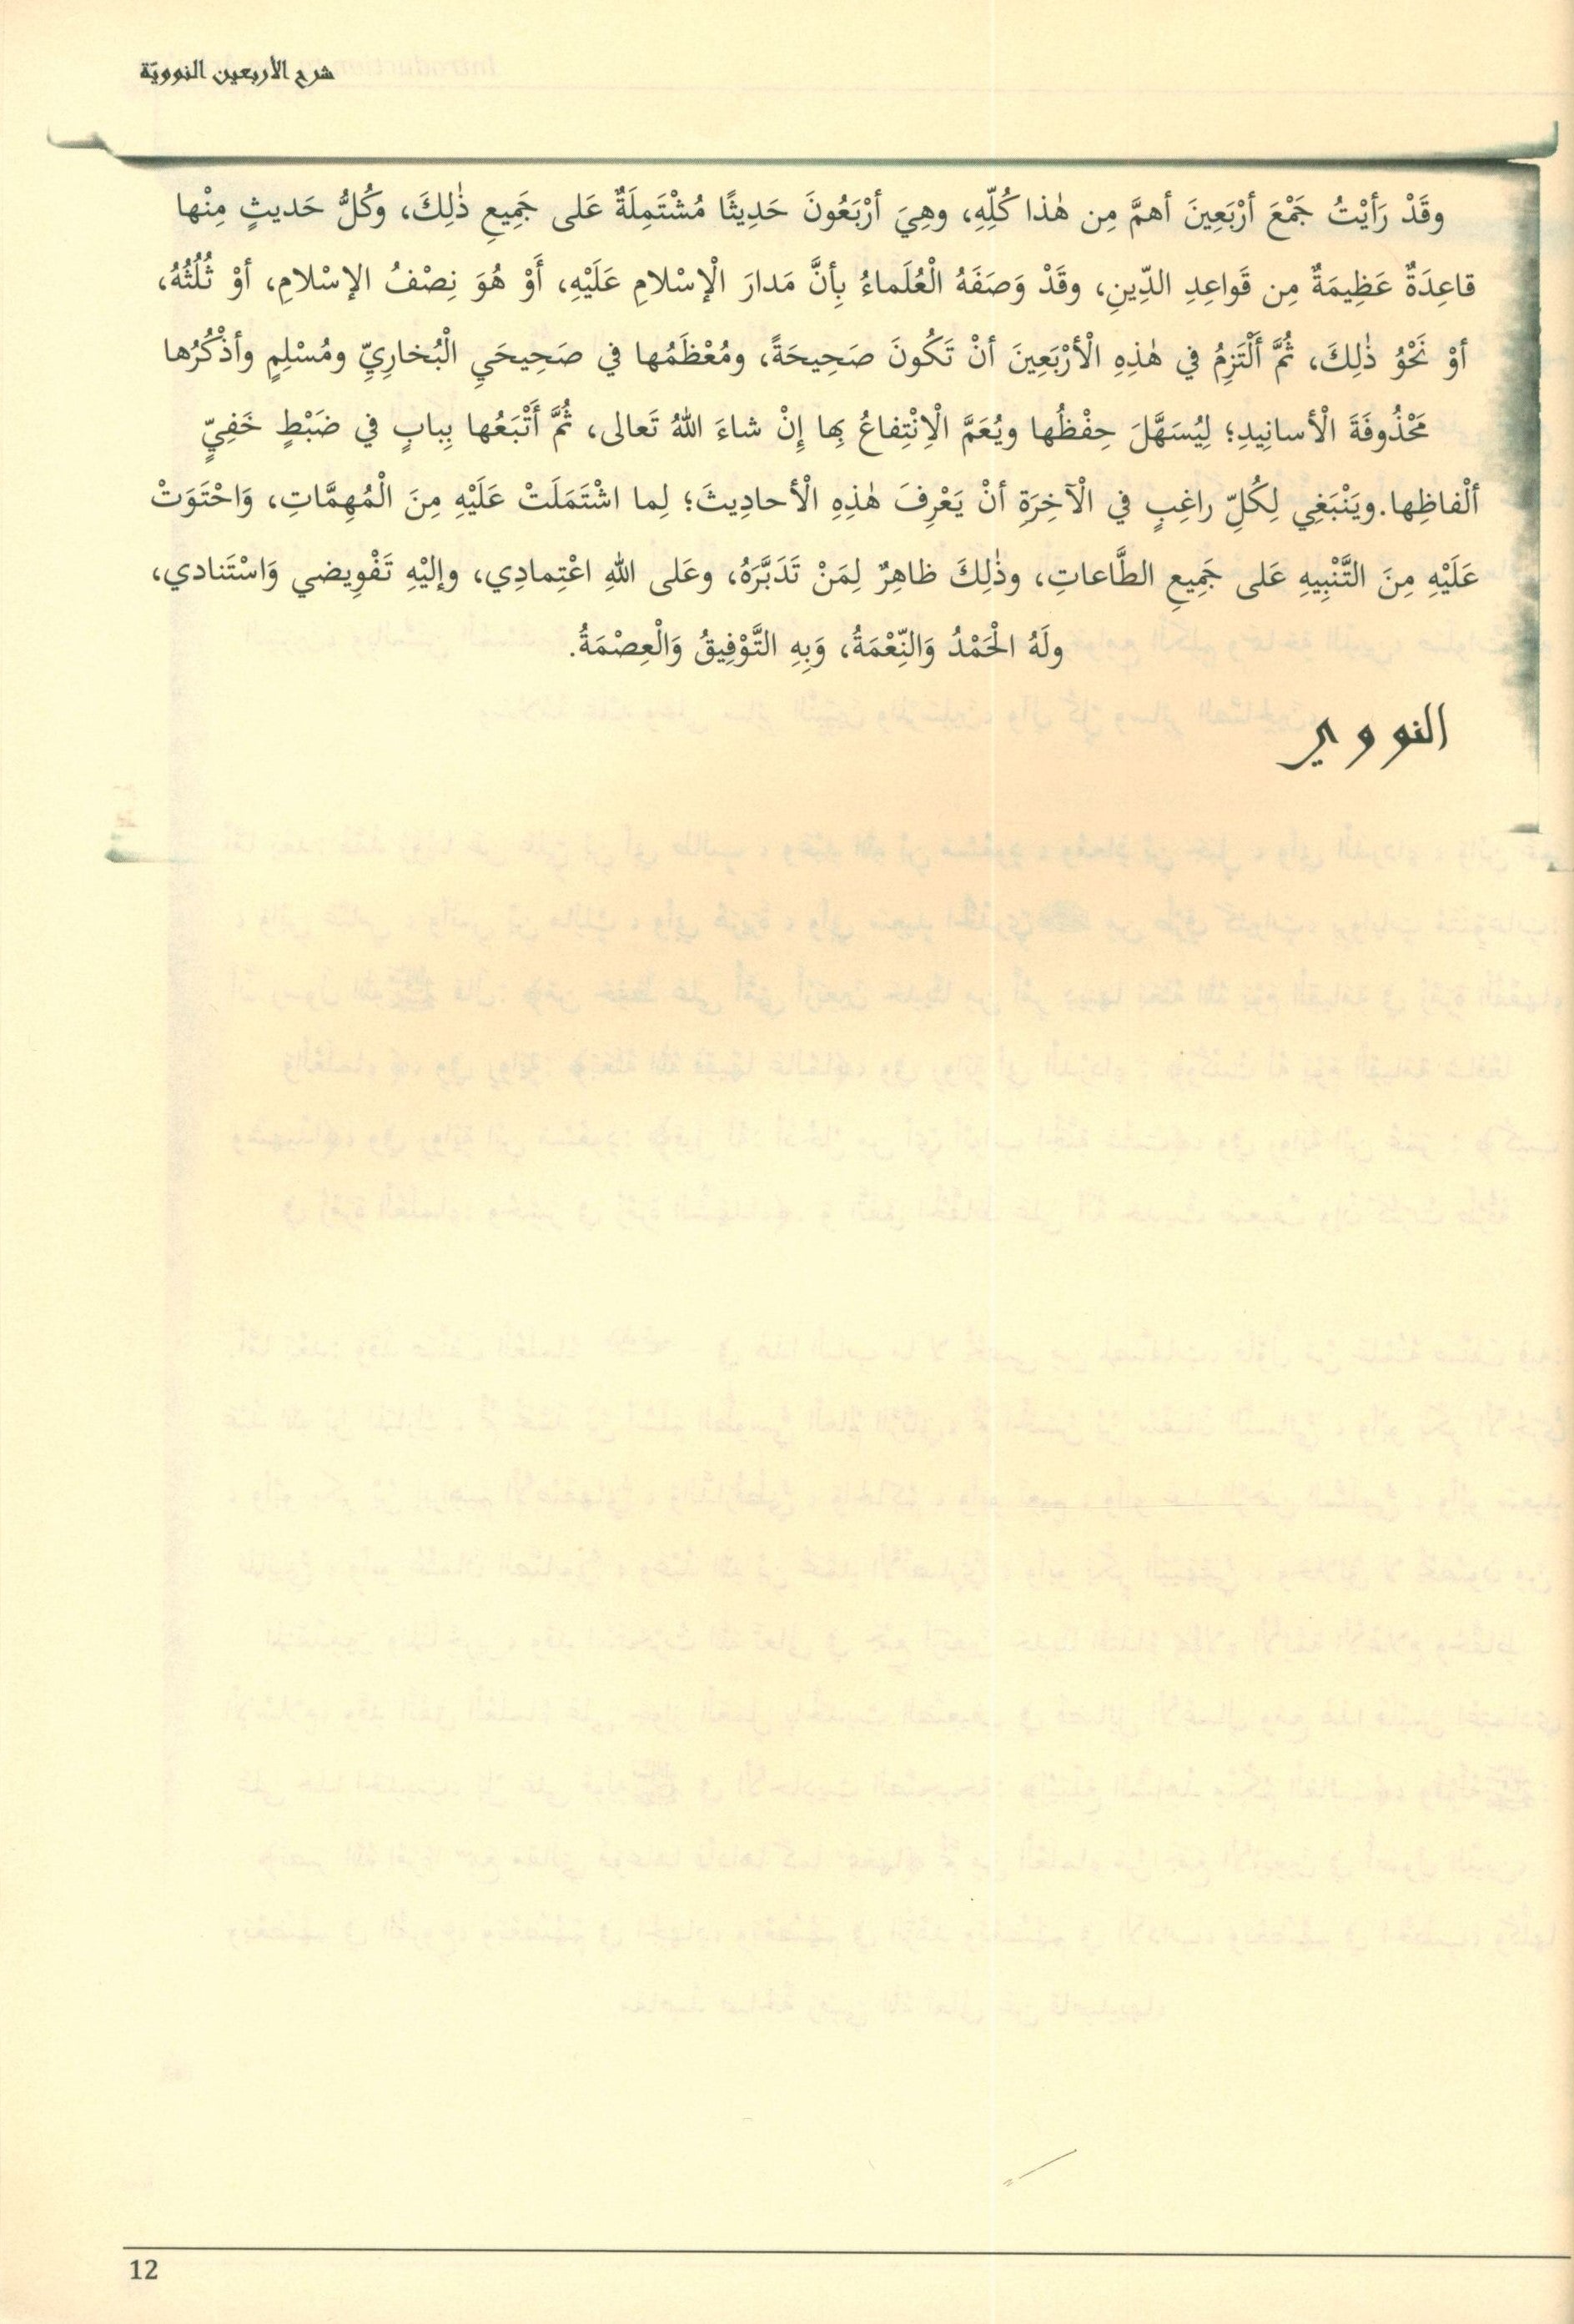 شرح الأربعين النوويّة
وقَدْ رَأيْتُ جَمْعَ أرْبَعِينَ أهمَّ مِن هٰذا كُلِّهِ، وهِيَ أرْبَعُونَ حَدِيثًا مُشْتَمِلَةٌ عَلى جَمِيعِ ذٰلِكَ، وكُلُّ حَديثٍ مِنْها
قاعِدَةٌ عَظِيمَةٌ مِن قَواعِدِ الدِّينِ، وقَدْ وَصَفَهُ الْعُلَماءُ بِأنَّ مَدارَ الْإسْلامِ عَلَيْهِ، أَوْ هُوَ نِصْفُ الإسْلامِ، أوْ ثُلُثُهُ،
أوْ نَحْوُ ذٰلِكَ، ثُمَّ أَلْتَزِمُ في هٰذِهِ الْأرْبَعِينَ أنْ تَكُونَ صَحِيحَةً، ومُعْظَمُها في صَحِيحَيِ الْبُخارِيِّ ومُسْلِمٍ وأذْكُرُها
مَحْذُوفَةَ الْأسانِيدِ؛ لِيُسَهَّلَ حِفْظُها ويُعَمَّ الْاِنْتِفاعُ بِها إِنْ شاءَ اللهُ تَعالى، ثُمَّ أَتْبَعُها بِبابٍ في ضَبْطٍ خَفِيِّ
ألْفاظِها.ويَنْبَغِي لِكُلِّ راغِبٍ في الْآخِرَةِ أنْ يَعْرِفَ هٰذِهِ الْأحادِيثَ؛ لِما اشْتَمَلَتْ عَلَيْهِ مِنَ الْمُهِمَّاتِ، وَاحْتَوَتْ
عَلَيْهِ مِنَ التَّنْبِيهِ عَلى جَمِيعِ الطَّاعاتِ، وذٰلِكَ ظاهِرٌ لِمَنْ تَدَبَّرَهُ، وعَلى اللهِ اعْتِمادِي، وإليْهِ تَفْوِيضي وَاسْتَنادي،
ولَهُ الْحَمْدُ وَالنِّعْمَةُ، وَبِهِ التَّوْفِيقُ وَالْعِصْمَةُ.
النووي
12